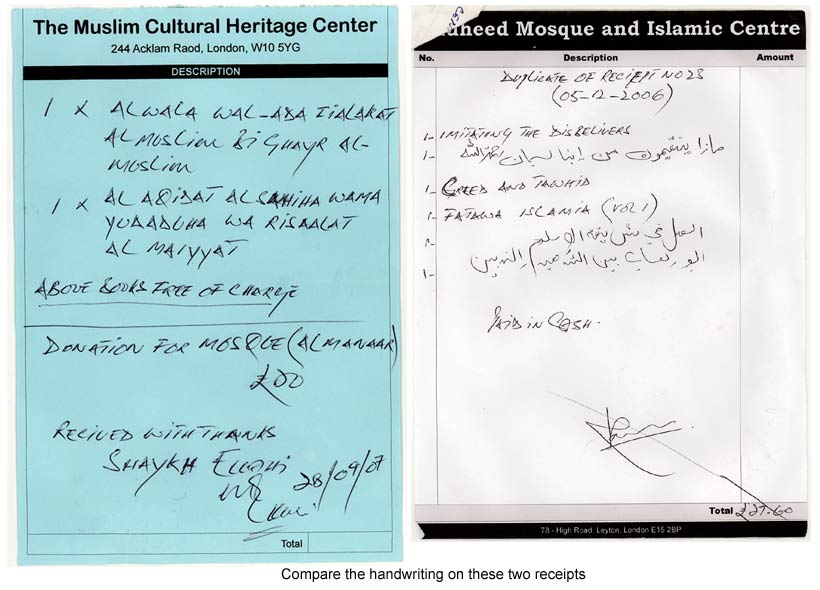 The Muslim Cultural Heritage Center
244 Acklam Raod, London, W10 5YG
DESCRIPTION
1 x ALWALA WAL-ABA
ALMOSLIM BIGHAYR AL-
MOSLIM
1 x AL AQIDAT ALSAHIHA WAMA
YUDADUHA WA RISAALAT
AL MAIYYAT
ABOVE BOOKS FREE OF CHARGE
DONATION FOR MOSQUE (ALMANAAR)
RECIVED WITH THANKS
SHAYKH
28/09/07
Total
heed Mosque and Islamic Centre
No. Description Amount
DUPLICATE OF RECIEPT NO 25
(05-12-2006)
1- IMITATING THE DISBELIVERS
1- ماذا من
1- CREED AND TAWHID
1- FATAWA ISLAMIA (VOL 1)
1- في
1- بين
PAID IN CASH.
Total £27.60
78 - High Road, Leyton, London E15 2BP
Compare the handwriting on these two receipts